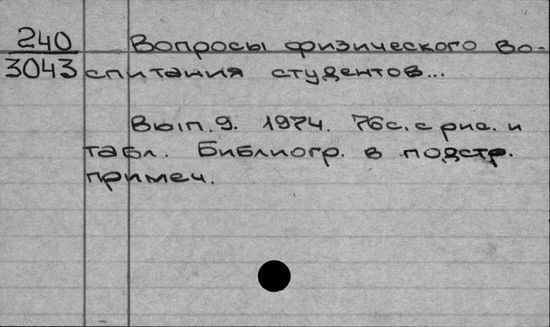 240 Вопросы физического во-
3043 спитания студентов...
Вып. 9. 1974. 76с. с рис. и
табл. Библиогр. в подстр.
примеч.